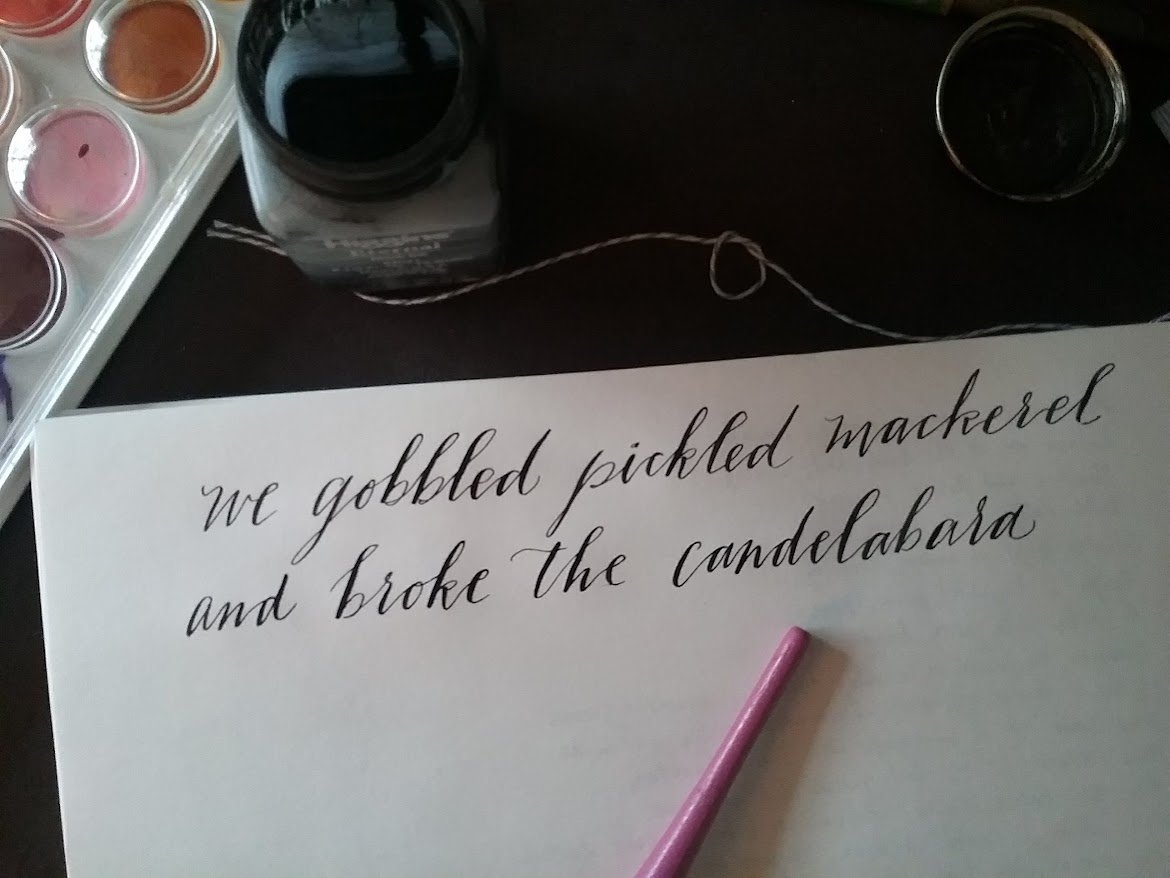 Higgins
Eternal
we gobbled pickled mackerel
and broke the candelabara